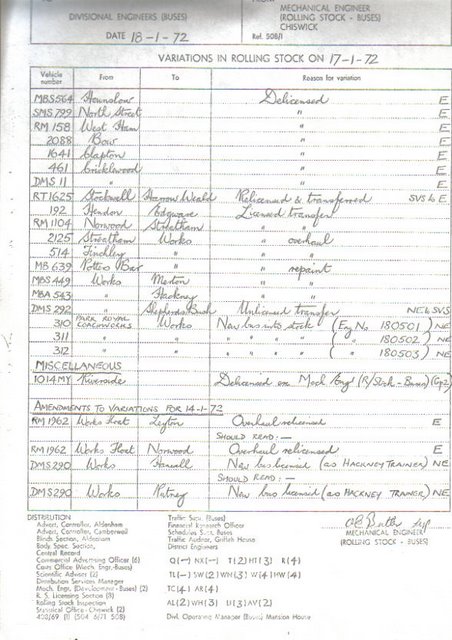 TO
FROM
DIVISIONAL ENGINEERS (BUSES)
MECHANICAL ENGINEER
(ROLLING STOCK - BUSES)
CHISWICK
DATE 18-1-72
Ref. 508/1
VARIATIONS IN ROLLING STOCK ON 17-1-72
Vehicle number From To Reason for variation
MBS 564 Hounslow Delicensed E
SMS 799 North Street " E
RM 158 West Ham " E
2088 Bow " E
1641 Clapton " E
461 Cricklewood " E
DMS 11 " " E
RT 1625 Stockwell Harrow Weald Relicensed & transferred SVS to E
192 Hendon Edgware Licensed transfer
RM 1104 Norwood Streatham " "
2125 Streatham Works " overhaul
514 Finchley " " "
MB 639 Potters Bar " " repaint
MBS 449 Works Merton " "
MBA 543 " Hackney " "
DMS 292 " Shepherds Bush Unlicensed transfer NE to SVS
310 PARK ROYAL COACHWORKS Works New bus into stock (Eng No 180501) NE
311 " " " " " " ( " 180502) NE
312 " " " " " " ( " 180503) NE
MISCELLANEOUS
1014MY Riverside Delicensed ex Mech Engr (R/Stock - Buses)
AMENDMENTS TO VARIATIONS FOR 14-1-72
RM 1962 Works Float Leyton Overhaul relicensed E
SHOULD READ:—
RM 1962 Works Float Norwood Overhaul relicensed E
DMS 290 Works New bus licensed (as HACKNEY TRAINER) NE
SHOULD READ:—
DMS 290 Works Putney New bus licensed (as HACKNEY TRAINER) NE
DISTRIBUTION
Advert. Controller, Aldenham
Advert. Controller, Camberwell
Blinds Section, Aldenham
Body Spec. Section,
Central Record
Commercial Advertising Officer (6)
Costs Office (Mech. Engr.-Buses)
Scientific Adviser (2)
Distribution Services Manager
Mech. Engr. (Development - Buses) (2)
R. S. Licensing Section (8)
Rolling Stock Inspection
Statistical Officer - Chiswick (2)
408/69 (1) (504 6/71 508)
Traffic Supt. (Buses)
Financial Research Officer
Schedules Supt. Buses
Traffic Auditor, Griffith House
District Engineers
Q(-) NX(-) T(2) HT(3) R(4)
TL(-) SW(2) WN(3) W(4) HW(4)
TC(4) AR(4)
AL(2) WH(3) U(3) AV(2)
Divl. Operating Manager (Buses) Mansion House
MECHANICAL ENGINEER
(ROLLING STOCK - BUSES)